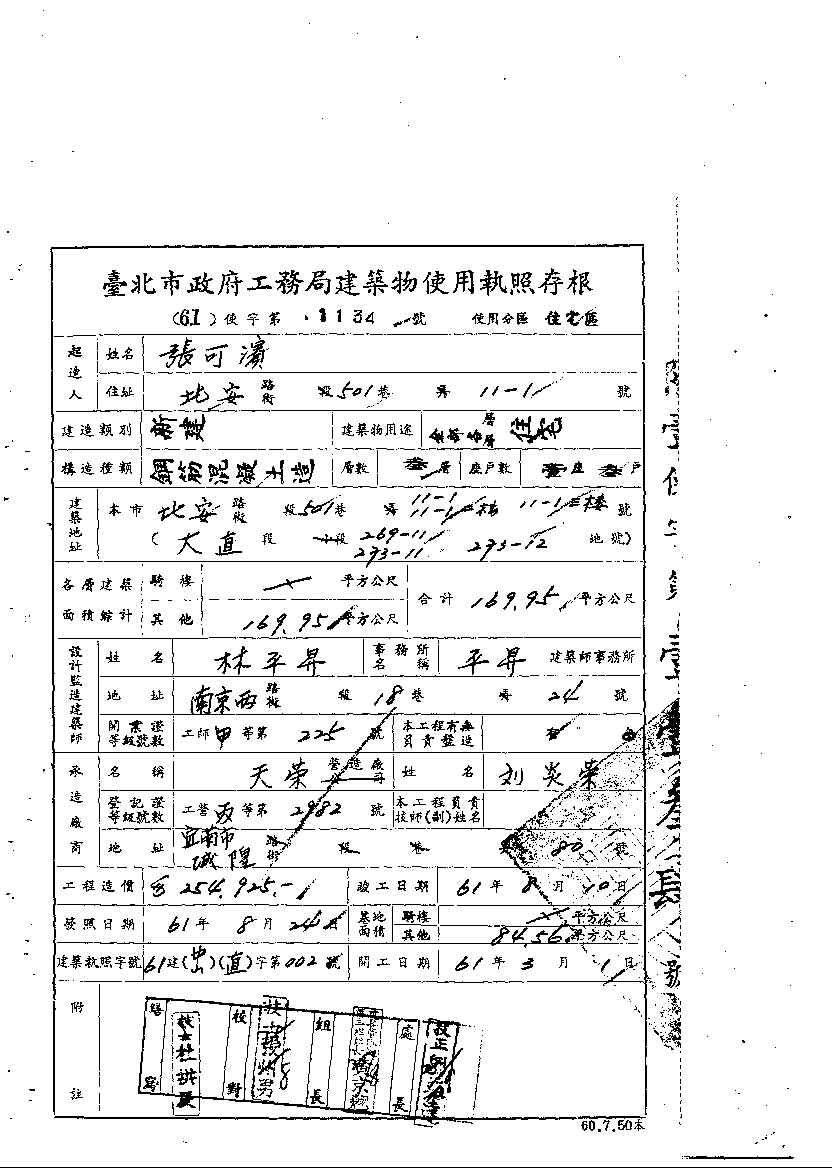 臺北市政府工務局建築物使用執照存根
(61)使字第 1134 號 使用分區 住宅區
起造人 姓名 張可濱
住址 北安路街 段501巷 弄 11-1 號
建造類別 新建 建築物用途 全部各層 住宅
構造種類 鋼筋混凝土造 層數 叁層 座戶數 壹座叁戶
建築地址 本市 北安路街 段501巷 弄 11-1 11-1二樓 11-1三樓 號
(大直段 小段 269-11 273-11 273-12 地號)
各層建築面積餘計 騎樓 平方公尺
其他 169.95 平方公尺 合計 169.95 平方公尺
設計監造建築師 姓名 林平昇 事務所名稱 平昇 建築師事務所
地址 南京西路街 段 18巷 弄 24 號
開業證等級號數 工師甲等第 225 號 本工程有無負責監造
承造廠商 名稱 天榮 營造廠 姓名 刘炎榮
登記證等級號數 工營 等第 2982 號 本工程負責技師(副)姓名
地址 城隍 路街 段 巷 弄 80 號
工程造價 254,925.- 竣工日期 61年8月10日
發照日期 61年8月24日 基地面積 騎樓 平方公尺
其他 84.56 平方公尺
建築執照字號 61建( )(直)字第002號 開工日期 61年3月1日
附註
繕寫 校對 組長 處長
60.7.50本